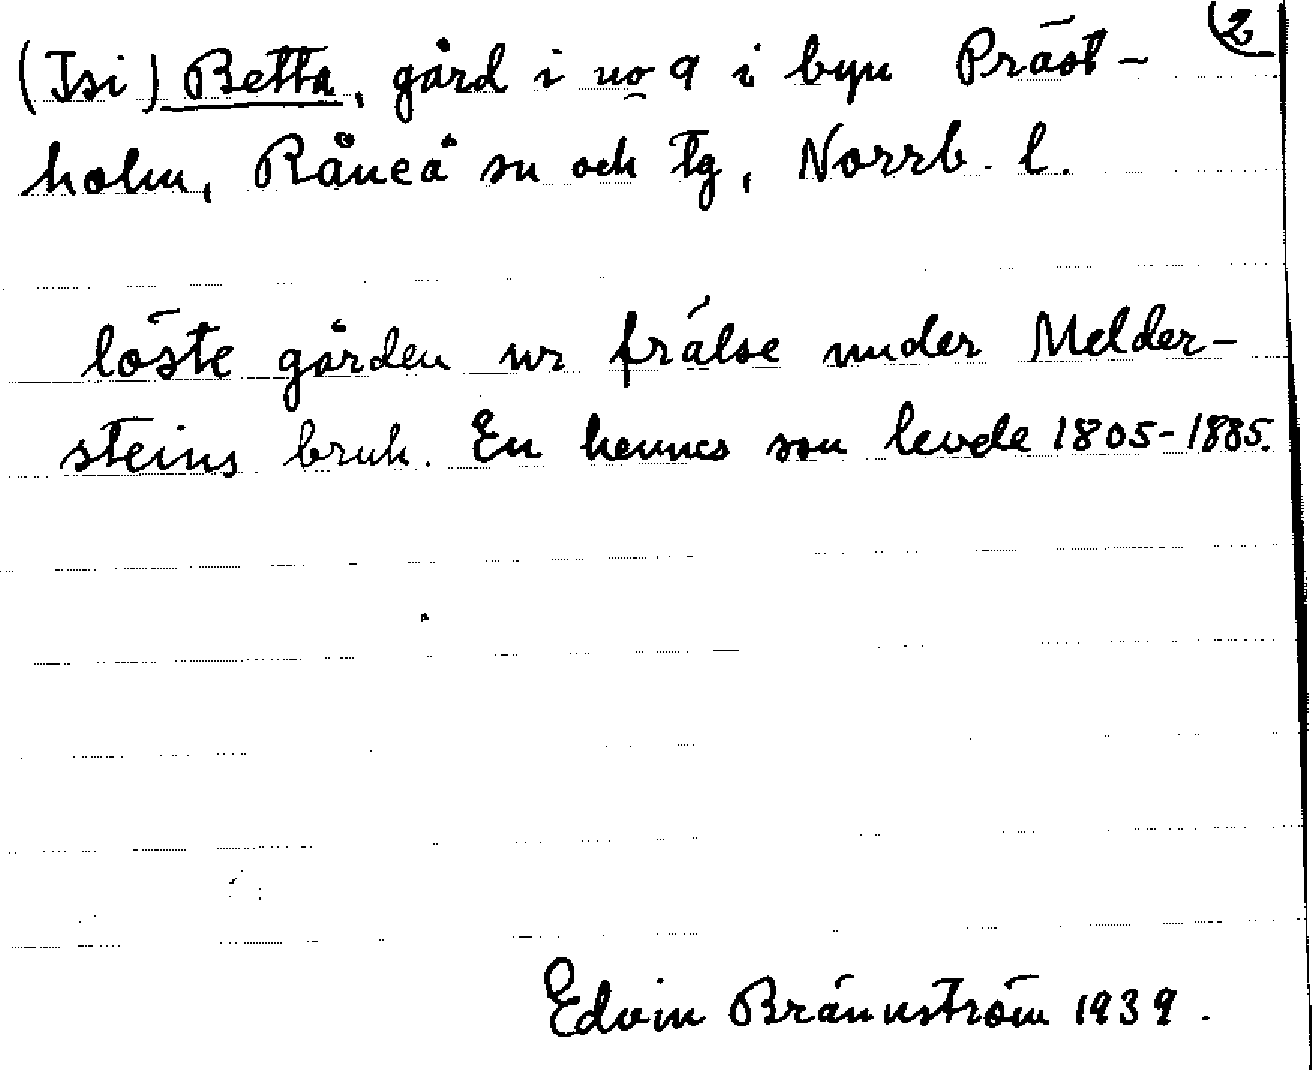 2
(Isi) Betta, gård i no 9 i byn Präst-
holm, Råneå sn och tg, Norrb. l.
löste gården ur frälse under Melder-
steins bruk. En hennes son levde 1805-1885.
Edvin Brännström 1939.